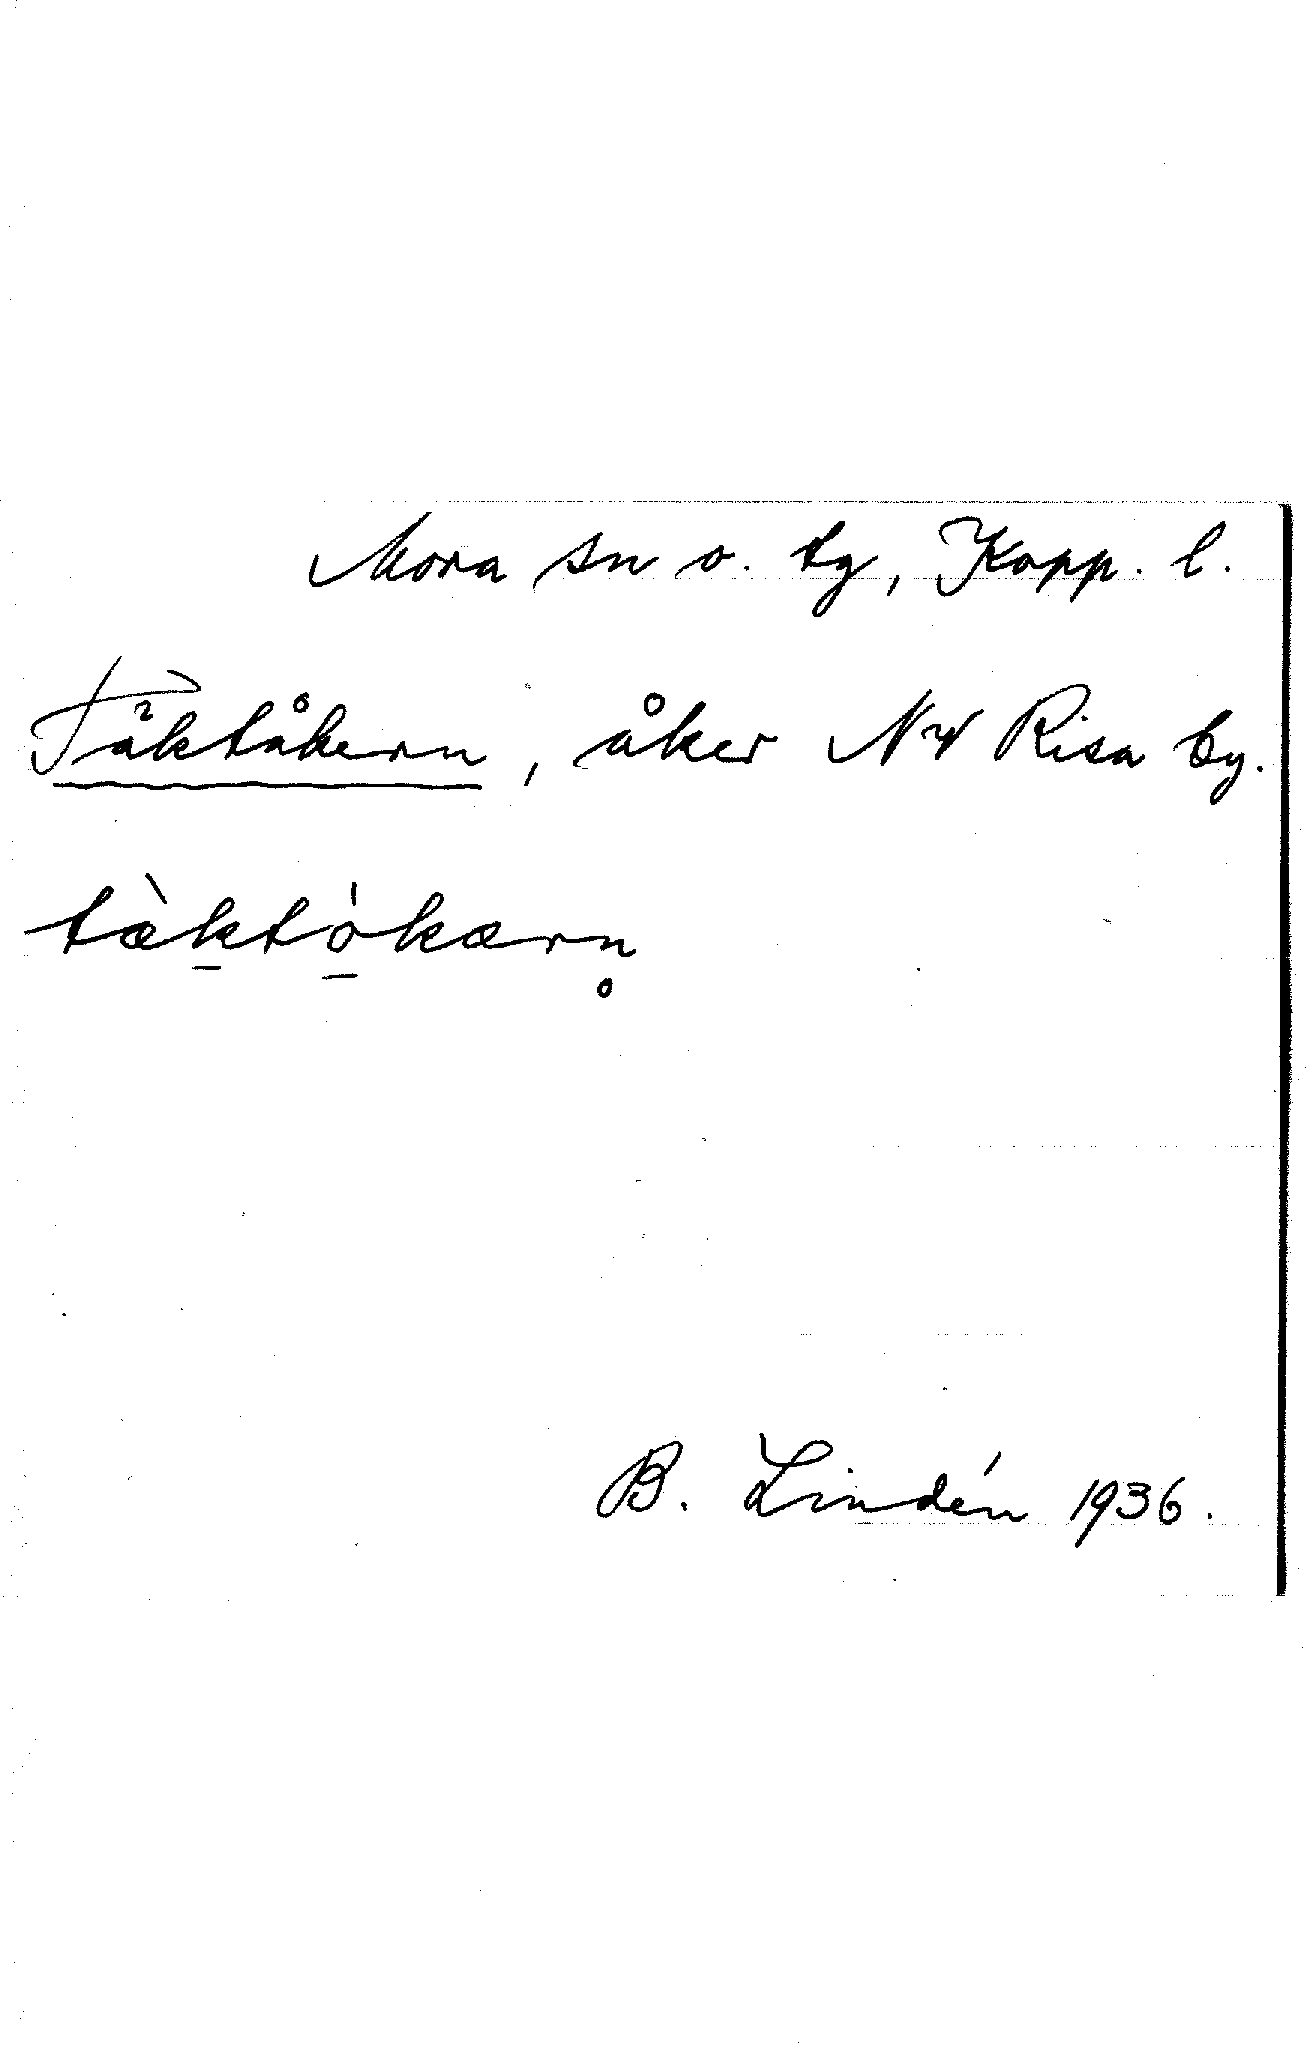 Mora sn o. tg, Kopp. l.
Täktåkern, åker NV Risa by.
tæ̀kṯó̱kærn̥
B. Lindén 1936.